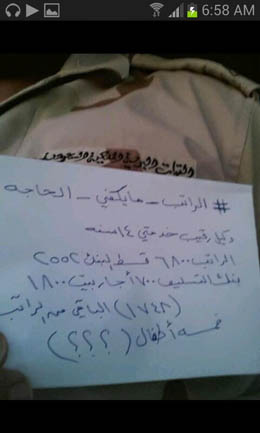 6:58 AM
القوات البرية الملكية السعودية
# الراتب - مايكفي - الحاجه
وكيل رقيب خدمتي ١٤ سنه
الراتب ٦٨٠٠ قسط البنك ٢٥٥٢
بنك التسليف ٧٠٠ أجار بيت ١٨٠٠
(١٧٤٨) الباقي من الراتب
خمسه أطفال (؟؟؟)